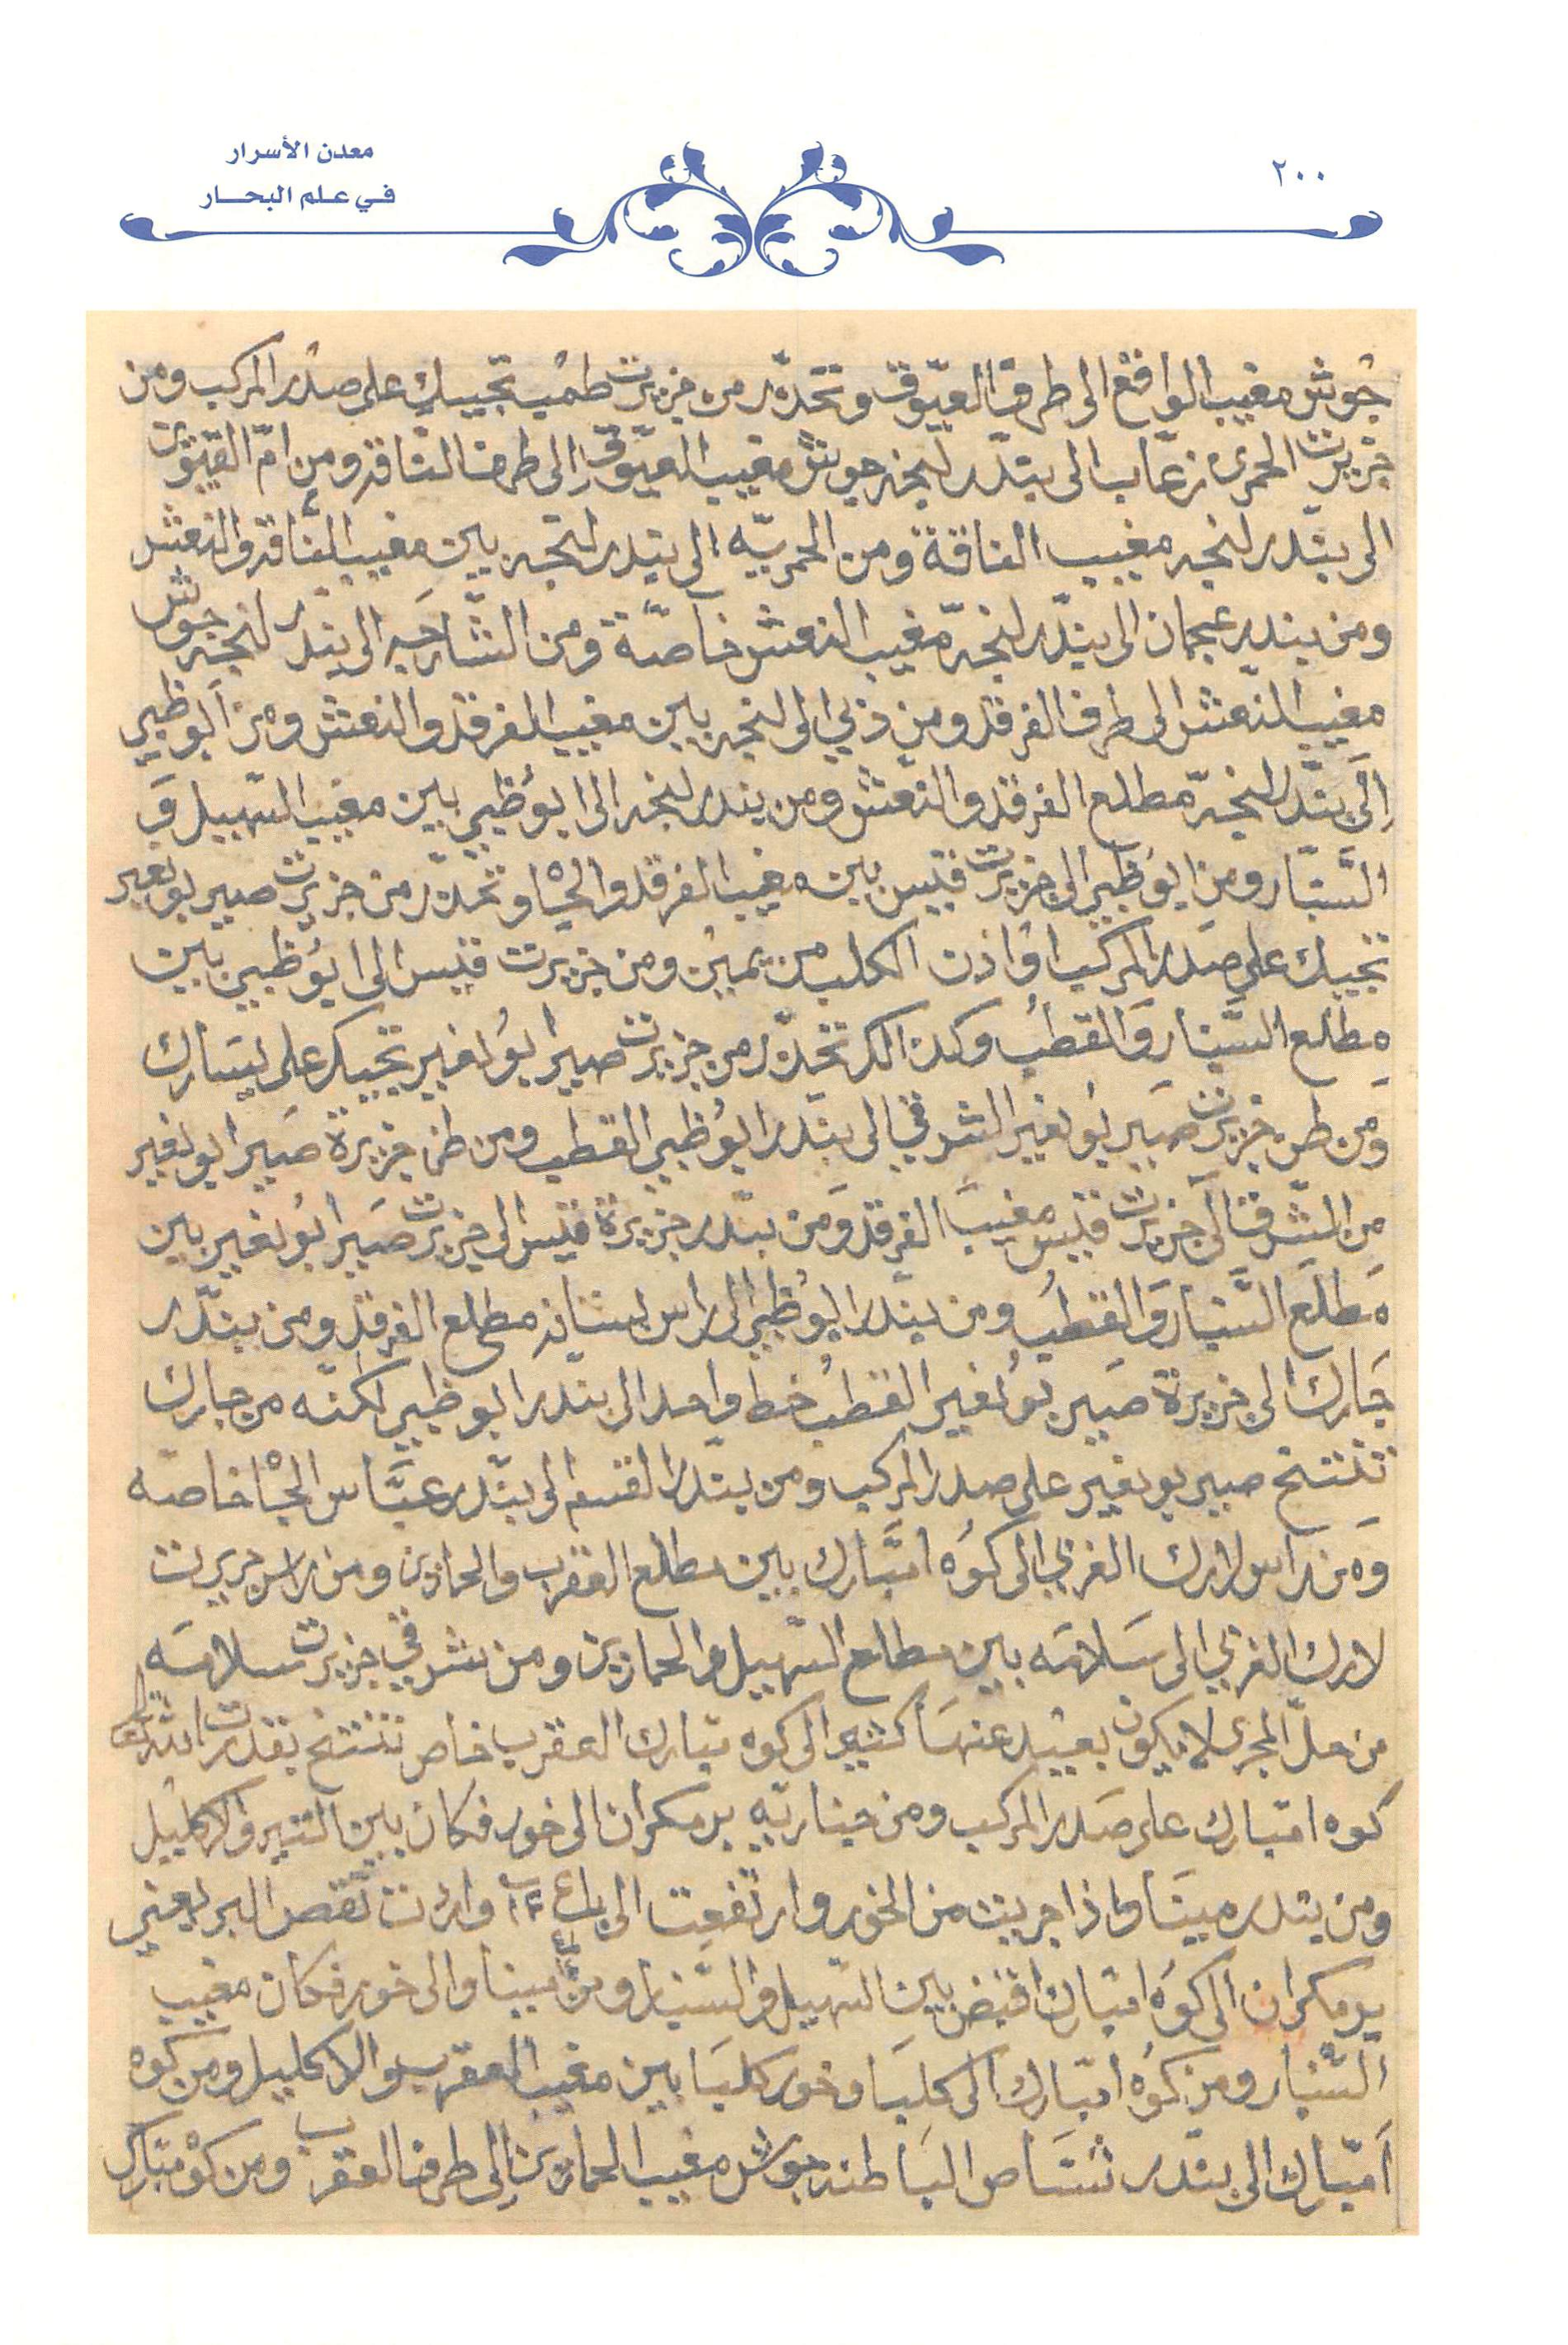 معدن الأسرار
في علم البحار
٢٠٠
جوش مغيب الواقع الى طرف العيّوق وتحدّر من جزيرت طمب تجيك على صدر المركب ومن
جزيرت الحمرى زعاب الى بندر لنجه جوش مغيب العيّوق الى طرف الناقه ومن امّ القيوين
الى بندر لنجه مغيب الناقة ومن الحمريّه الى بندر لنجه بين مغيب الناقه والنعش
ومن بندر عجمان الى بندر لنجه مغيب النعش خاصّة ومن الشارجه الى بندر لنجه جوش
مغيب النعش الى طرف الفرقد ومن ذبي الى لنجه بين مغيب الفرقد والنعش ومن ابوظبي
إلى بندر لنجه مطلع الفرقد والنعش ومن بندر لنجه الى ابوظبي بين مغيب السهيل و
السّنبار ومن ابوظبي الى جزيرت قيس بين مغيب الفرقد والجاه وتحدّر من جزيرت صير بونعير
تجيك على صدر المركب اوذن الكلب من يمين ومن جزيرت قيس الى ابوظبي بين
مطلع السّنبار والقطب وكذالك تحدّر من جزيرت صير ابونعير تجيك على يسارك
ومن طرف جزيرت صير بونعير الشرقي الى بندر ابوظبي القطب ومن طرف جزيرة صير ابونعير
من الشرق الى جزيرت قيس مغيب الفرقد ومن بندر جزيرة قيس الى جزيرت صير ابونعير بين
مطلع السّنبار والقطب ومن بندر ابوظبي الى راس بستانه مطلع الفرقد ومن بندر
جارك الى جزيرة صير بونعير القطب خط واحد الى بندر ابوظبي لكنّه من جارك
تنتخ صير بونعير على صدر المركب ومن بندر القسم الى بندر عبّاس الجاه خاصه
ومن راس لارك الغربي الى كوه امبارك بين مطلع العقرب والحمارين ومن راس جزيرت
لارك الغربي الى سلامه بين مطلع السهيل والحمارين ومن شرقي جزيرت سلامه
من حلّ المجرى لا يكون بعيد عنها كثير الى كوه مبارك العقرب خاص تنتخ بقدرت الله تعالى
كوه امبارك على صدر المركب ومن برمكران الى خور فكان بين التير والاكليل
ومن بندر ميناو اذا جريت من الخور وارتفعت الى باع ١٢ واردت تقص البر يعني
برمكران الى كوه امبارك اقبض بين السهيل والسّنبار ومن ميناو الى خور فكان مغيب
السّنبار ومن كوه امبارك الى كلبا وخور كلبا بين مغيب العقرب والاكليل ومن كوه
امبارك الى بندر شناص الباطنه جوش مغيب الحمارين إلى طرف العقرب ومن كوه مبارك